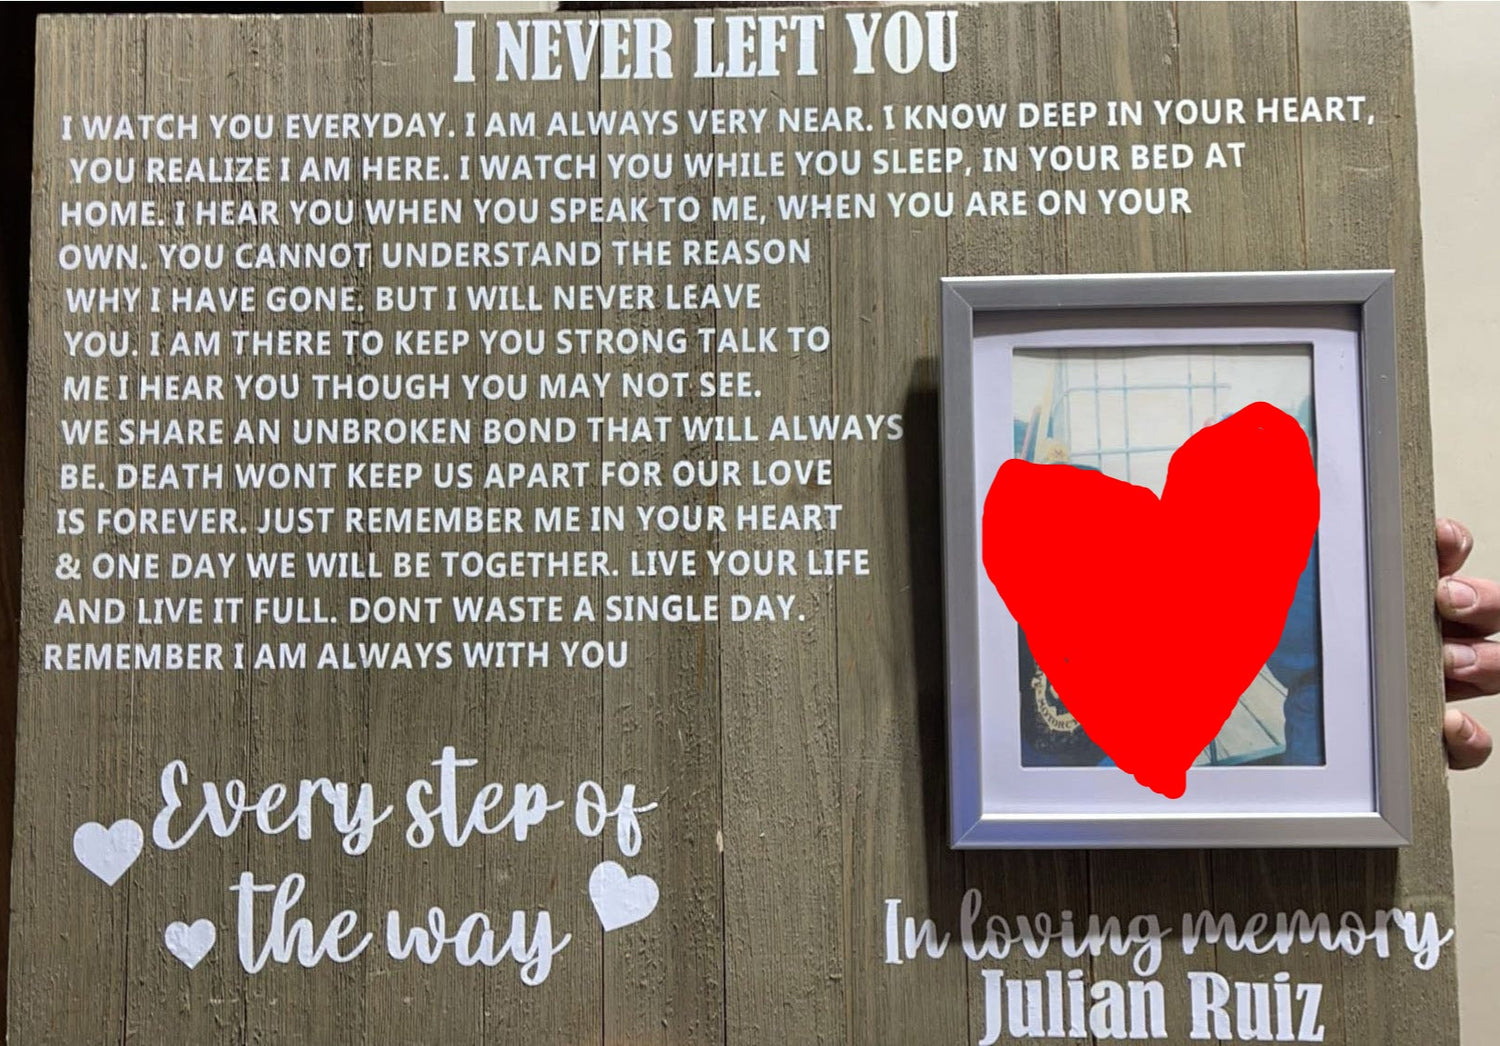 I NEVER LEFT YOU
I WATCH YOU EVERYDAY. I AM ALWAYS VERY NEAR. I KNOW DEEP IN YOUR HEART,
YOU REALIZE I AM HERE. I WATCH YOU WHILE YOU SLEEP, IN YOUR BED AT
HOME. I HEAR YOU WHEN YOU SPEAK TO ME, WHEN YOU ARE ON YOUR
OWN. YOU CANNOT UNDERSTAND THE REASON
WHY I HAVE GONE. BUT I WILL NEVER LEAVE
YOU. I AM THERE TO KEEP YOU STRONG TALK TO
ME I HEAR YOU THOUGH YOU MAY NOT SEE.
WE SHARE AN UNBROKEN BOND THAT WILL ALWAYS
BE. DEATH WONT KEEP US APART FOR OUR LOVE
IS FOREVER. JUST REMEMBER ME IN YOUR HEART
& ONE DAY WE WILL BE TOGETHER. LIVE YOUR LIFE
AND LIVE IT FULL. DONT WASTE A SINGLE DAY.
REMEMBER I AM ALWAYS WITH YOU
Every step of
the way
In loving memory
Julian Ruiz